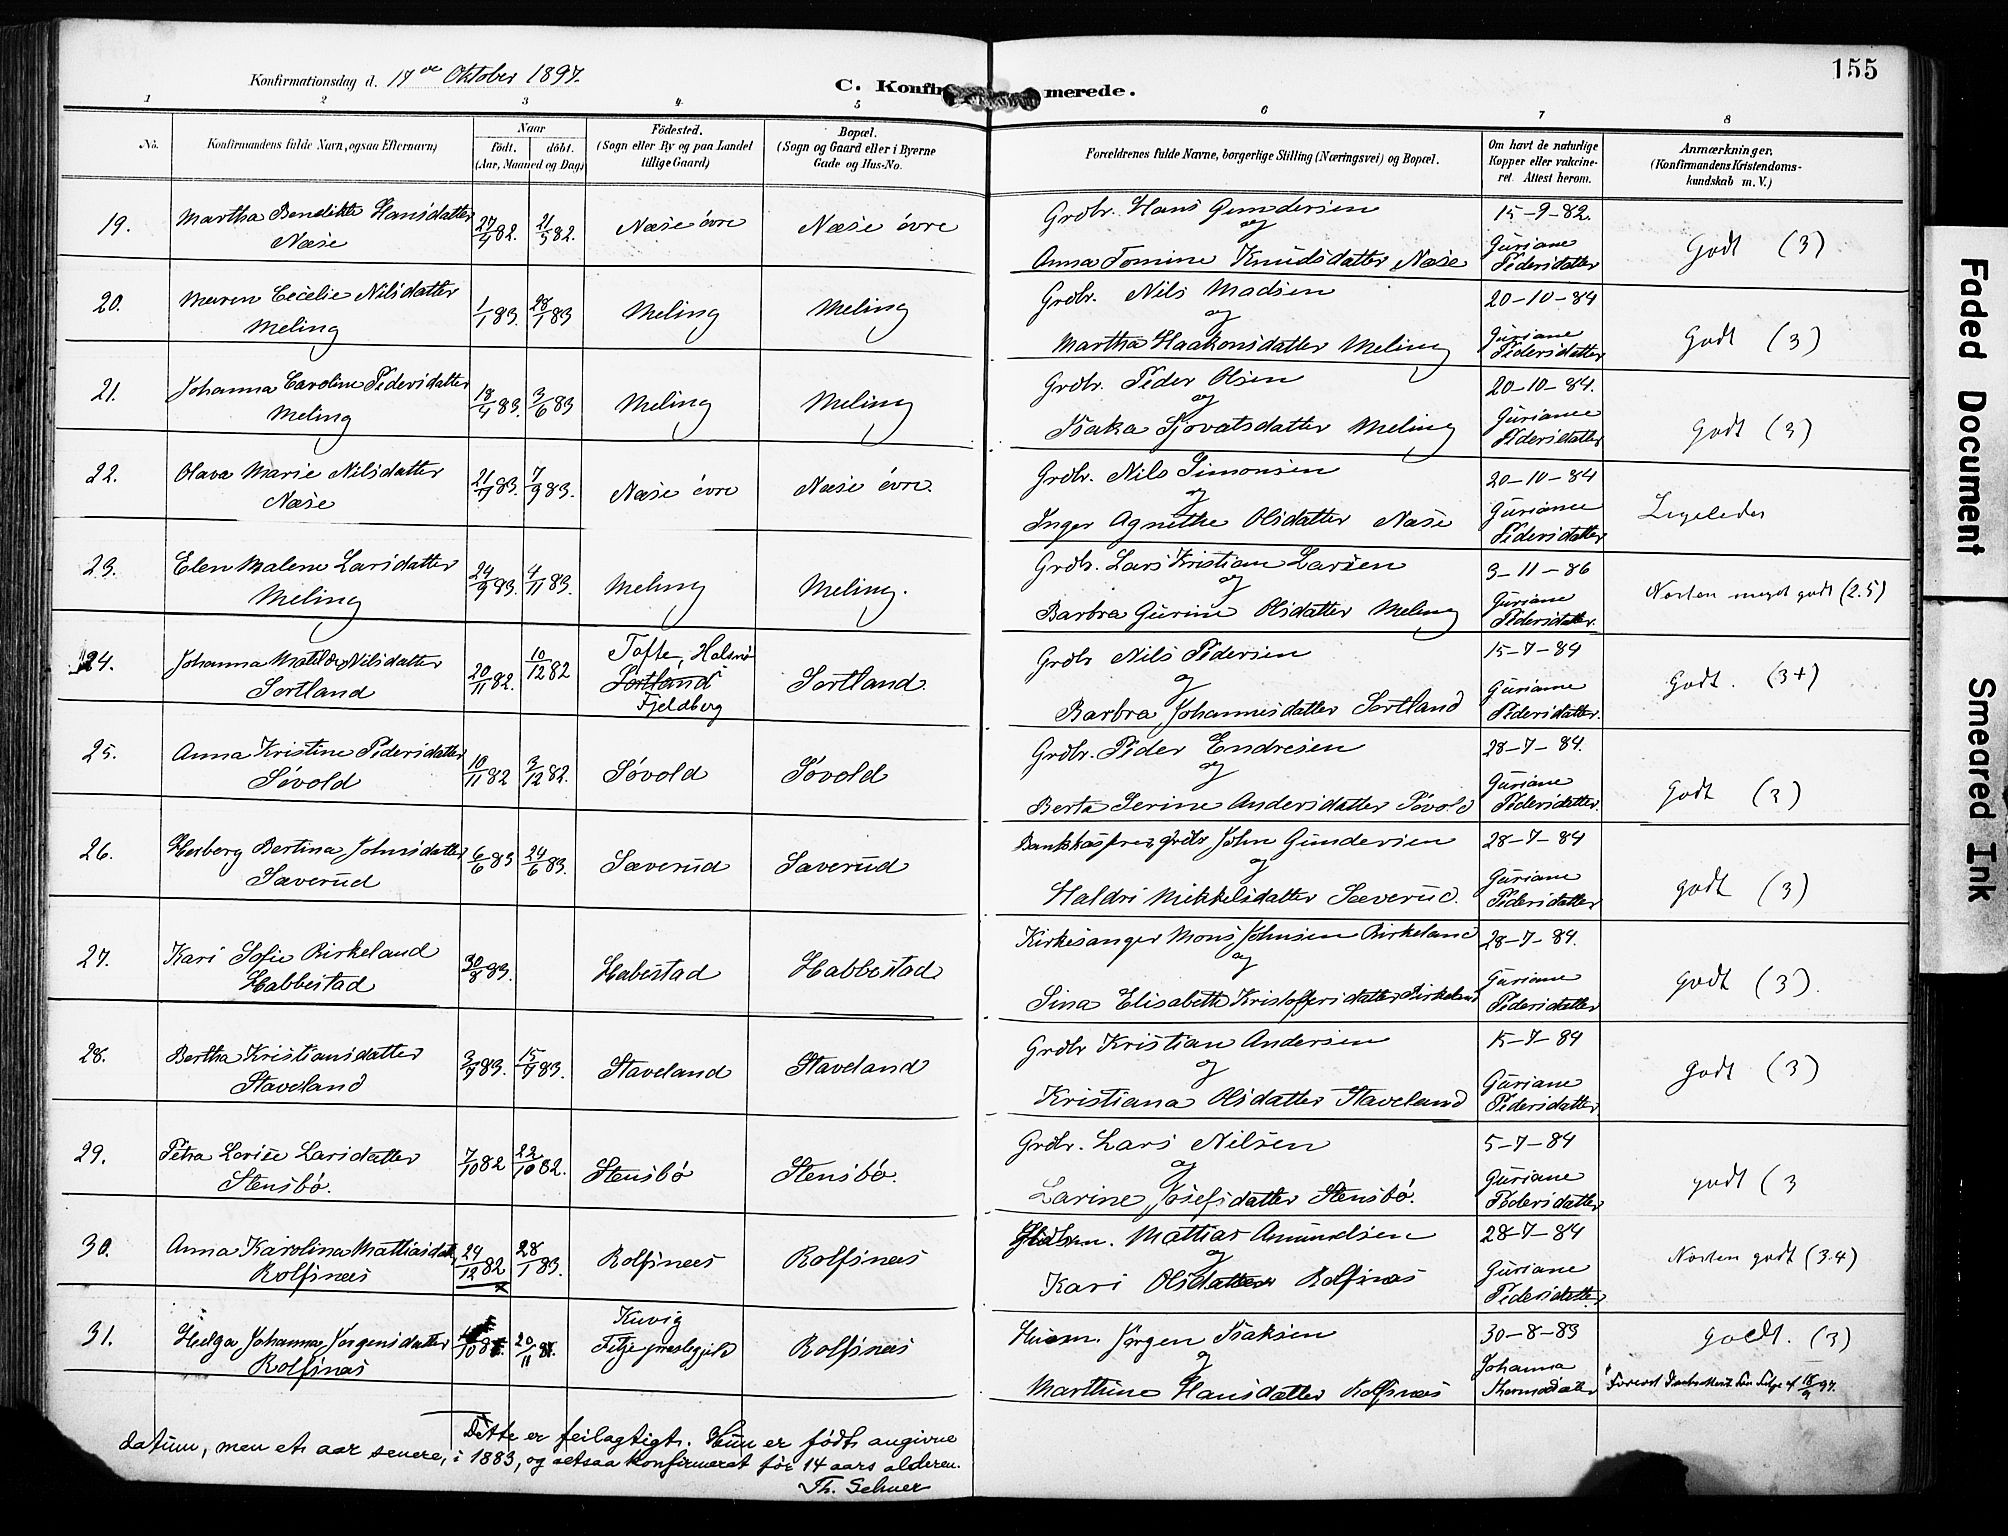 155
Konfirmationsdag d. 17de Oktober 1897.
C. Konfirmerede.
1 2 3 4 5 6 7 8
No.
Konfirmandens fulde Navn, ogsaa Efternavn)
Naar
födt. döbt.
(Aar, Maaned og Dag)
Födested.
(Sogn eller By og paa Landet
tillige Gaard)
Bopæl.
(Sogn og Gaard eller i Byerne
Gade og Hus-No.
Forældrenes fulde Navne, borgerlige Stilling (Næringsvei) og Bopæl.
Om havt de naturlige
Kopper eller vakcine-
ret. Attest herom.
Anmærkninger,
(Konfirmandens Kristendoms-
kundskab m. V.)
19. Martha Bendikte Hansdatter
Næse
27/4 82. 21/5 82. Næse övre Næse övre
Grdbr. Hans Gundersen
og
Anna Tomine Knudsdatter Næse
15-9-82.
Guriane
Pedersdatter
Godt (3)
20. Maren Cecelie Nilsdatter
Meling
1/1 83. 28/1 83 Meling Meling
Grdbr. Nils Madsen
og
Martha Haakonsdatter Meling
20-10-84
Guriane
Pedersdatter
Godt (3)
21. Johanna Caroline Pedersdatter
Meling
18/4 83. 3/6 83 Meling Meling
Grdbr. Peder Olsen
og
Isaka Sjovatsdatter Meling
20-10-84.
Guriane
Pedersdatter
Godt (3)
22. Olava Marie Nilsdatter
Næse
83. 7/9 83. Næse övre Næse övre.
Grdbr. Nils Simonsen
og
Inger Agnethe Olsdatter Næse
20-10-84
Guriane
Pedersdatter
Ligeledes
23. Elen Malene Larsdatter
Meling
24/9 83. 4/11 83. Meling Meling.
Grdbr. Lars Kristian Larsen
og
Barbra Gurine Olsdatter Meling
3-11-86
Guriane
Pedersdatter.
Næsten meget godt (2.5)
24. Johanna Matilde Nilsdatter
Sortland
20/11 82. 10/12 82 Tofte, Halsnö
Sortland
Fjeldberg
Sortland.
Grdbr Nils Pedersen
og
Barbra Johannesdatter Sortland
15-7-84
Guriane
Pedersdatter.
Godt. (3+)
25. Anna Kristine Pedersdatter
Sövold
10/11 82 3/12 82. Sövold Sövold
Grdbr. Peder Endresen
og
Berta Serine Andersdatter Sövold
28-7-84.
Guriane
Pedersdatter.
Godt (3)
26. Herberg Bertina Johnsdatter
Sæverud
6/6 83 24/6 83. Sæverud Sæverud
Bankkasserer, grdbr John Gundersen
og
Haldri Mikkelsdatter Sæverud.
28-7-84
Guriane
Pedersdatter
godt (3)
27. Kari Sofie Birkeland
Habbestad
30/8 83. Habestad Habbestad
Kirkesanger Mons Johnsen Birkeland
og
Sina Elisabeth Kristoffersdatter Birkeland
28-7-84.
Guriane
Pedersdatter
godt (3).
28. Bertha Kristiansdatter
Staveland
83. 83. Staveland Staveland
Grdbr Kristian Andersen
og
Kristiana Olsdatter Staveland
15-7-84
Guriane
Pedersdatter
Godt (3)
29. Petra Lovise Larsdatter
Stensbö.
7/10 82 22/10 82. Stensbö Stensbö.
Grdbr. Lars Nilsen
og
Larine Josefsdatter Stensbö.
5-7-84
Guriane
Pedersdatter
godt (3
30. Anna Karolina Mattiasdat
Rolfsnæs
24/12 82 28/1 83. Rolfsnæs Rolfsnæs
Mattias Amundsen
og
Kari Olsdatter Rolfsnæs
28-7-84
Guriane
Pedersdatter
Næsten godt (3.4)
31. Helga Johanna Jørgensdatter
Rolfsnæs
20/11 Kuvig
Fitje prestegjeld
Rolfsnæs
Husm. Jørgen Isaksen
og
Marthine Hansdatter Rolfsnæs
30-8-83
Johanna
Thormodsdatter
godt. (3)
Dette er feilagtigt. Hun er födt angivne
datum, men et aar senere, i 1883, og altsaa konfirmeret för 14 aars alderen.
Th.
Faded Document
Smeared Ink